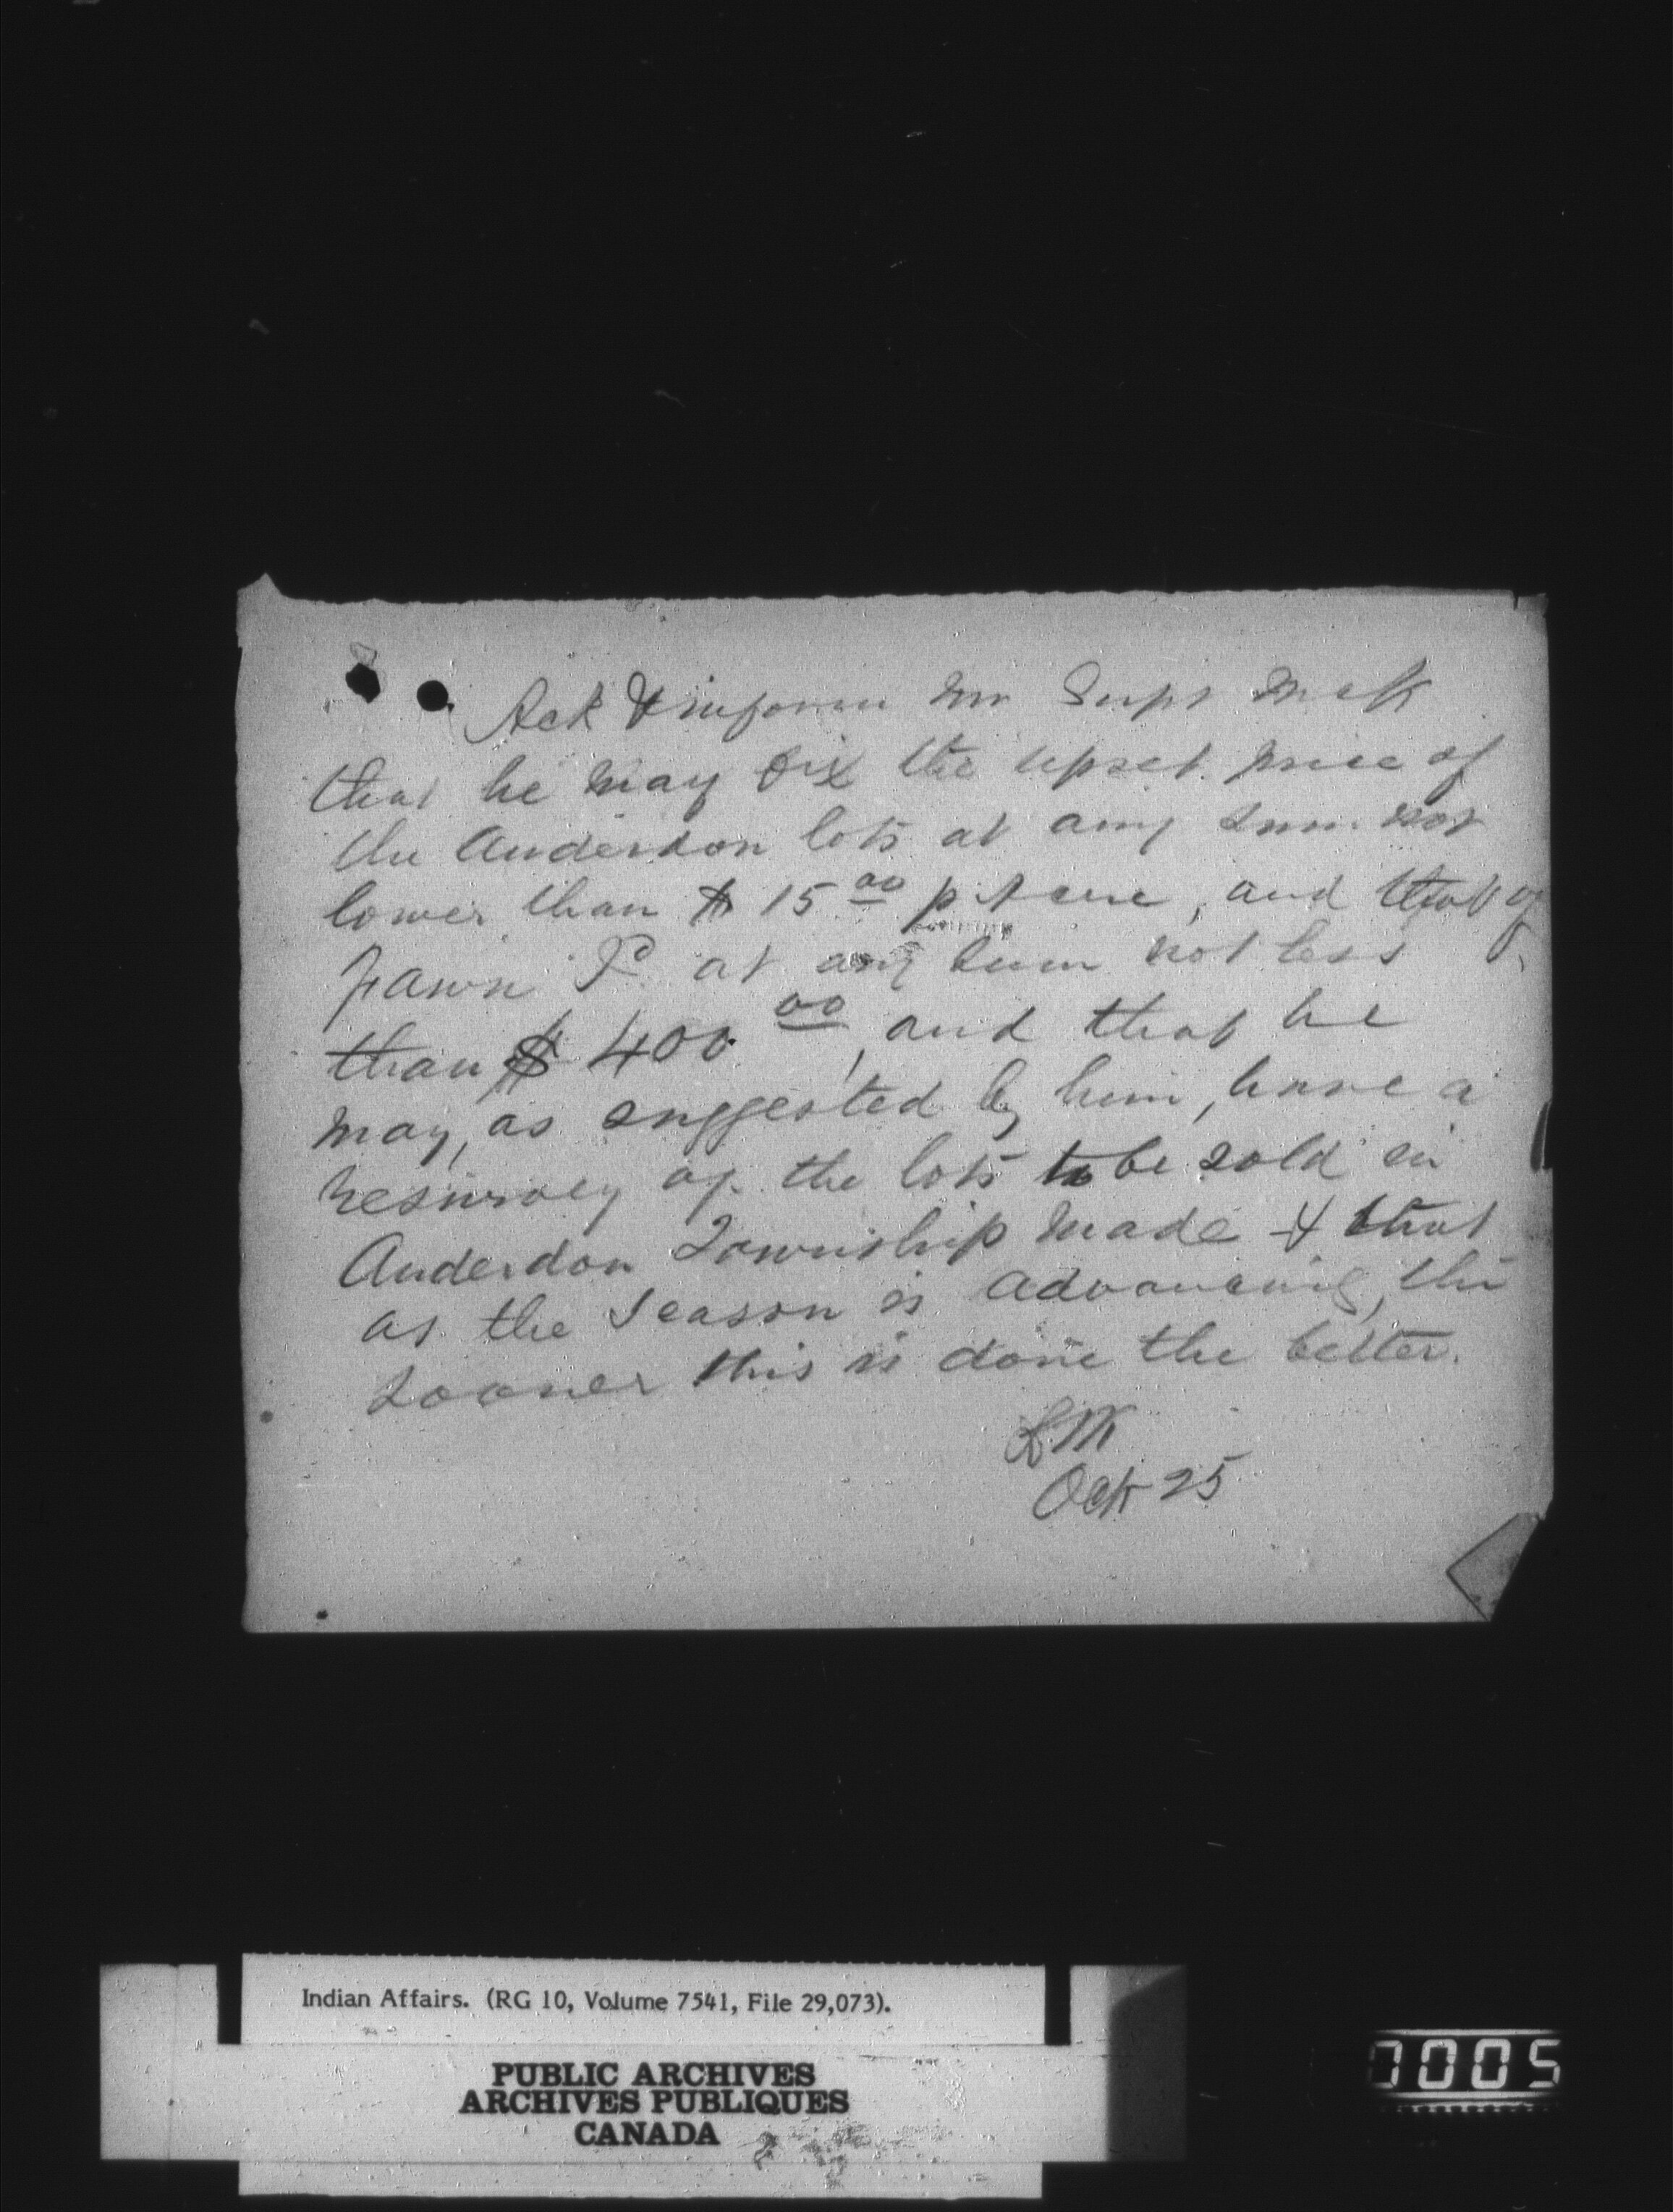 Ack & inform Mr Supt McK
that he may fix the upset price of
the Anderdon lots at any sum not
lower than $15 00 pr acre, and that of
Fawn Id at any sum not less
than $400 00, and that he
may, as suggested by him, have a
resurvey of the lots to be sold in
Anderdon Township made & that
as the season is advancing, the
sooner this is done the better.
Oct 25
Indian Affairs. (RG 10, Volume 7541, File 29,073).
PUBLIC ARCHIVES
ARCHIVES PUBLIQUES
CANADA
0005